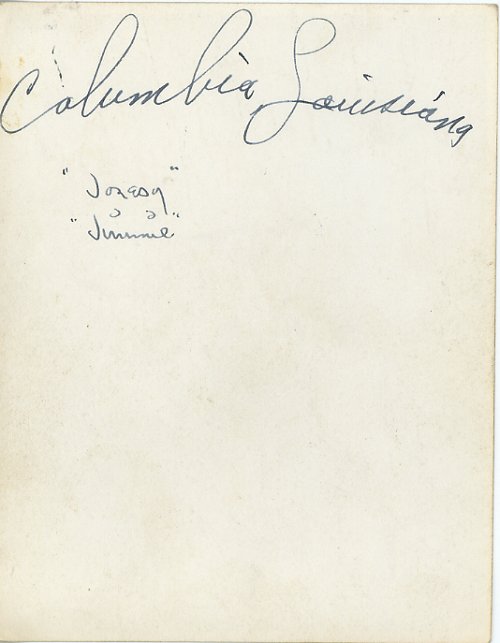 Columbia, Louisiana
"Jonesy"
"Jimmie"